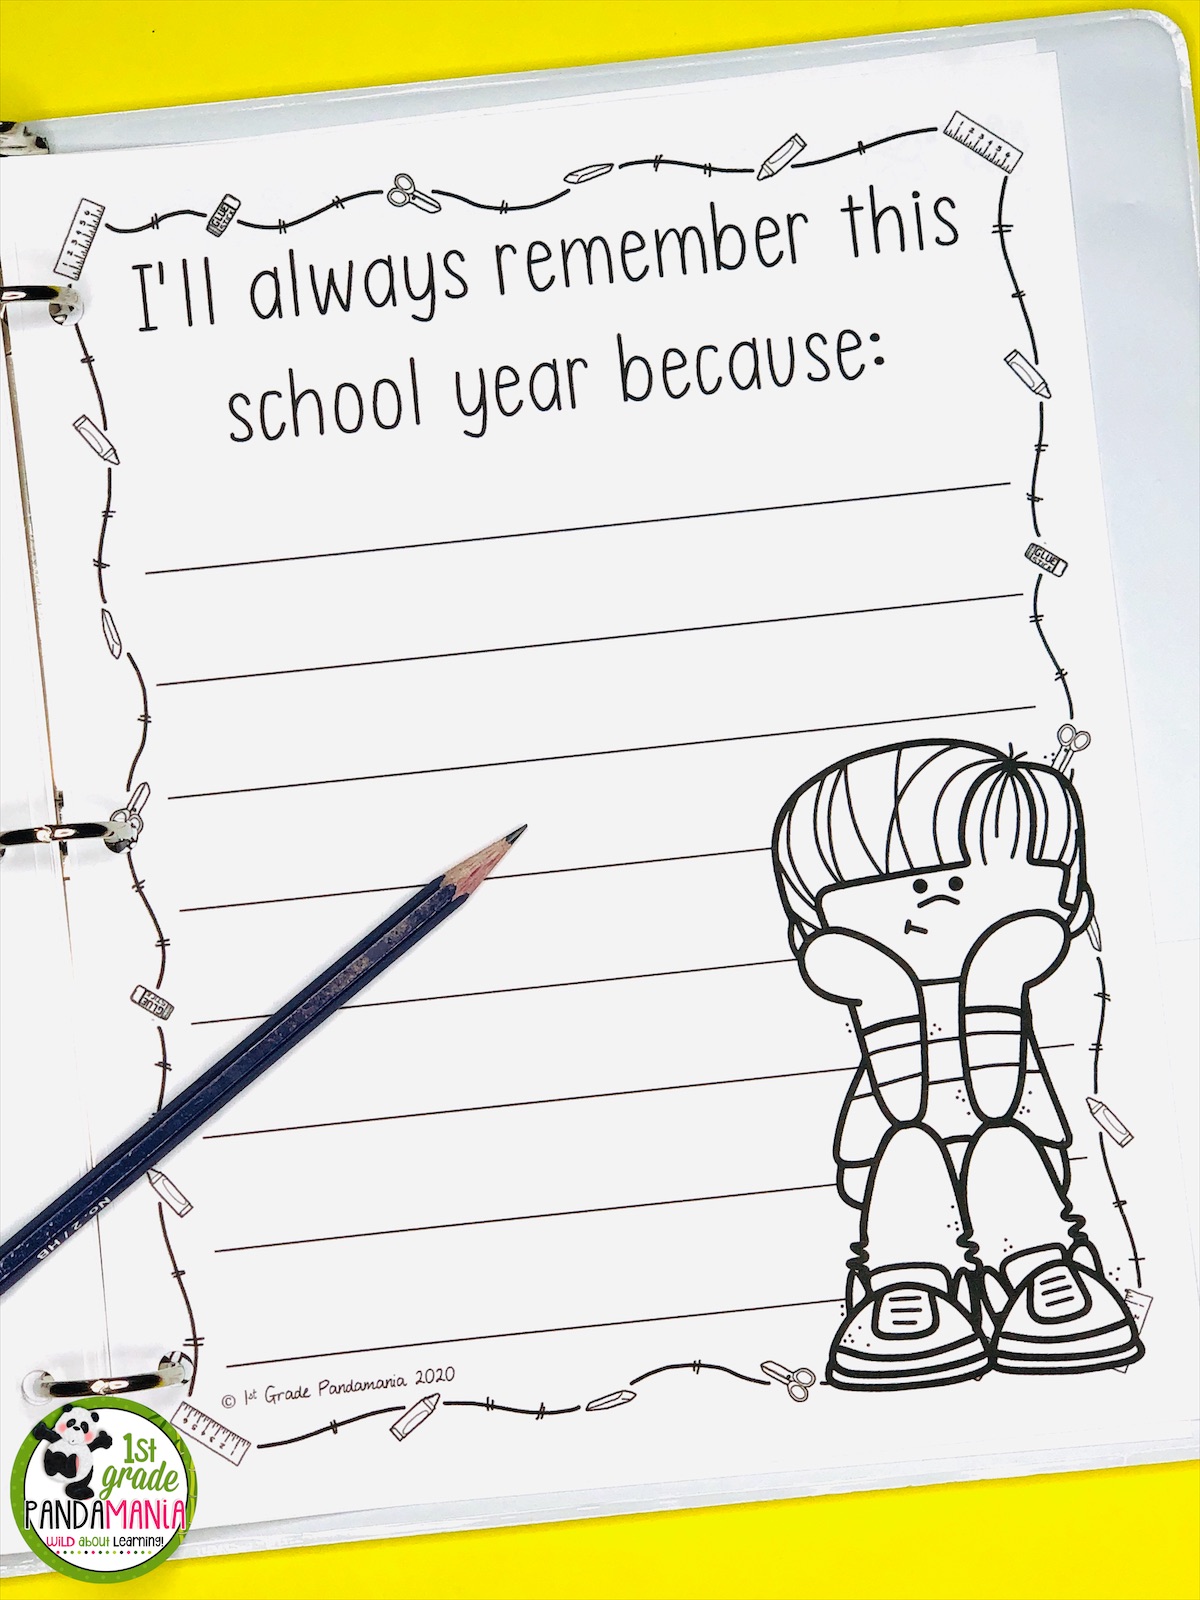 I'll always remember this
school year because:
GLUE
STICK
GLUE
STICK
GLUE
No. 2 / HB
© 1st Grade Pandamania 2020
1st
grade
PANDAMANIA
WILD about Learning!